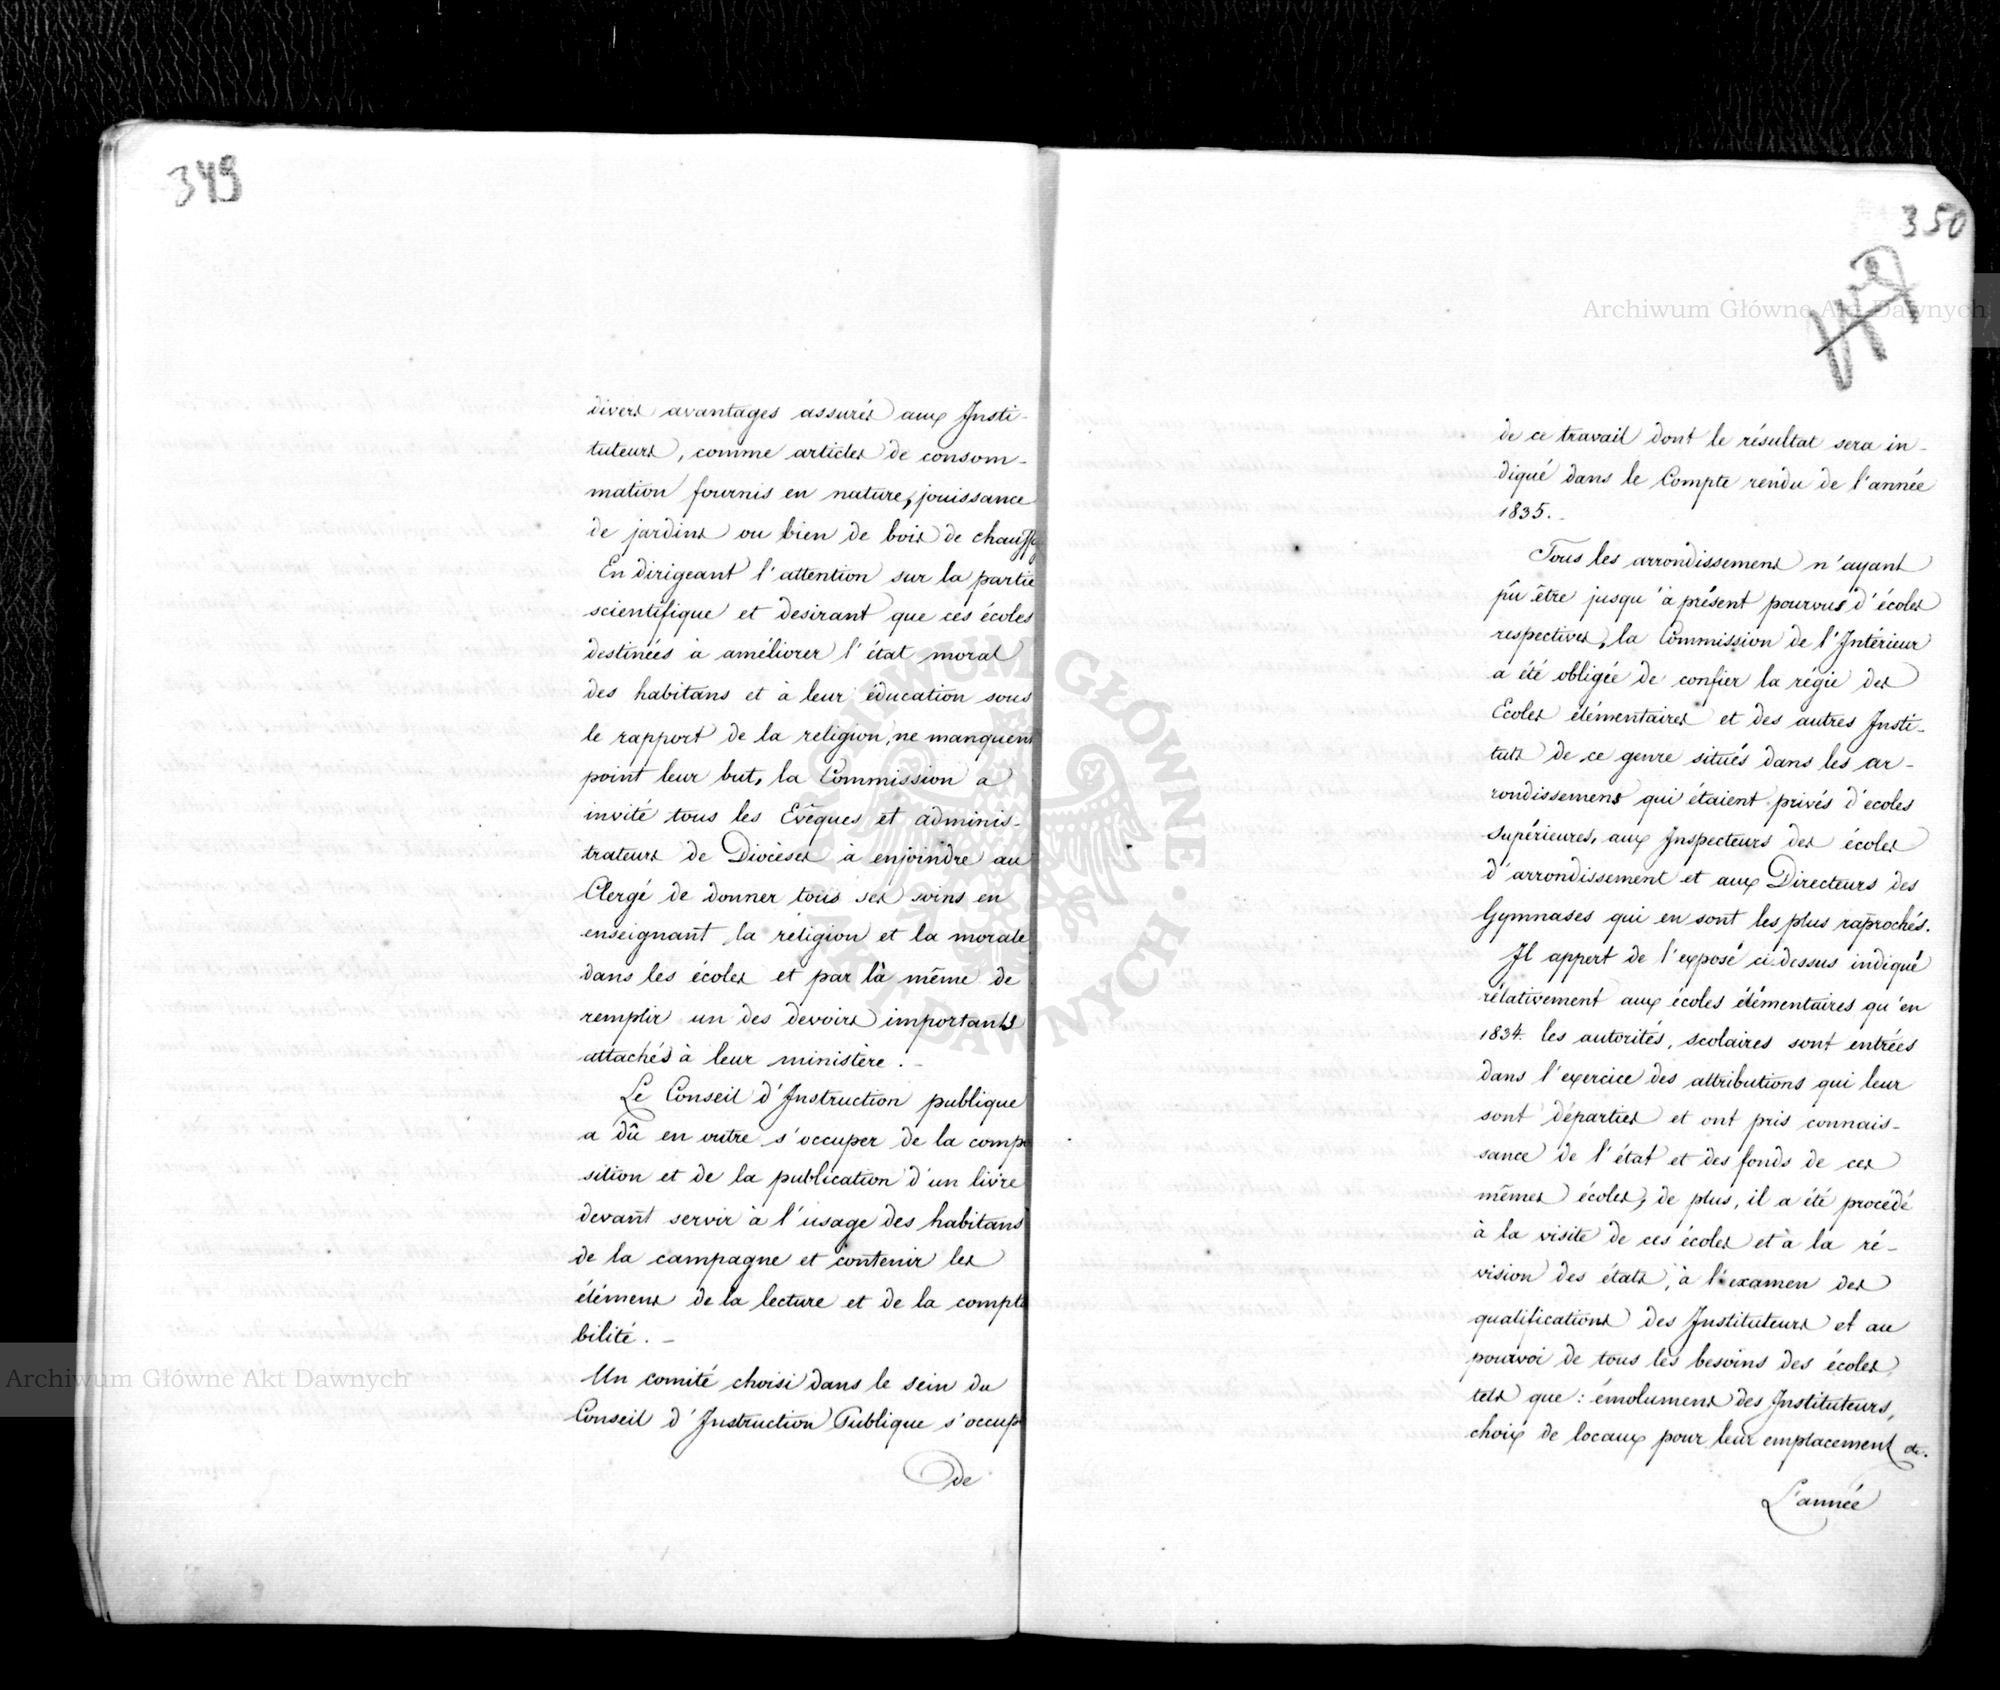 349
divers avantages assurés aux Insti-
tuteurs, comme articles de consom-
mation fournis en nature, jouissance
de jardins ou bien de bois de chauffg
En dirigeant l'attention sur la partie
scientifique et desirant que ces écoles
destinées à améliorer l'état moral
des habitans et à leur éducation sous
le rapport de la religion, ne manquent
point leur but, la Commission a
invité tous les Evêques et adminis-
trateurs de Diocèses à enjoindre au
Clergé de donner tous ses soins en
enseignant la religion et la morale
dans les écoles et par là même de
remplir un des devoirs importants
attachés à leur ministère. -
Le Conseil d'Instruction publique
a dû en outre s'occuper de la compo
sition et de la publication d'un livre
devant servir à l'usage des habitans
de la campagne et contenir les
élémens de la lecture et de la compta
bilité. -
Un comité choisi dans le sein du
Conseil d'Instruction Publique s'occupe
de
350
de ce travail dont le résultat sera in-
diqué dans le Compte rendu de l'année
1835. -
Tous les arrondissemens n'ayant
pû être jusqu'à présent pourvus d'écoles
respectives, la Commission de l'Intérieur
a été obligée de confier la régie des
Ecoles élémentaires et des autres Insti-
tuts de ce genre situés dans les ar-
rondissemens qui étaient privés d'écoles
supérieures, aux Inspecteurs des écoles
d'arrondissement et aux Directeurs des
Gymnases qui en sont les plus raprochés.
Il appert de l'exposé ci-dessus indiqué
rélativement aux écoles élémentaires qu'en
1834. les autorités, scolaires sont entrées
dans l'exercice des attributions qui leur
sont départies et ont pris connais-
sance de l'état et des fonds de ces
mêmes écoles; de plus, il a été procédé
à la visite de ces écoles et à la ré-
vision des états, à l'examen des
qualifications des Instituteurs et au
pourvoi de tous les besoins des écoles,
tels que: émolumens des Instituteurs,
choix de locaux pour leur emplacement &c.
L'année
Archiwum Główne Akt Dawnych
Archiwum Główne Akt Dawnych
ARCHIWUM GŁÓWNE AKT DAWNYCH